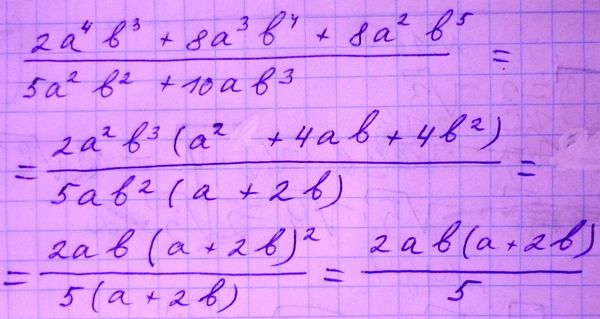 (2a⁴b³ + 8a³b⁴ + 8a²b⁵)/(5a²b² + 10ab³) =
= (2a²b³(a² + 4ab + 4b²))/(5ab²(a + 2b)) =
= (2ab(a + 2b)²)/(5(a + 2b)) = (2ab(a + 2b))/5